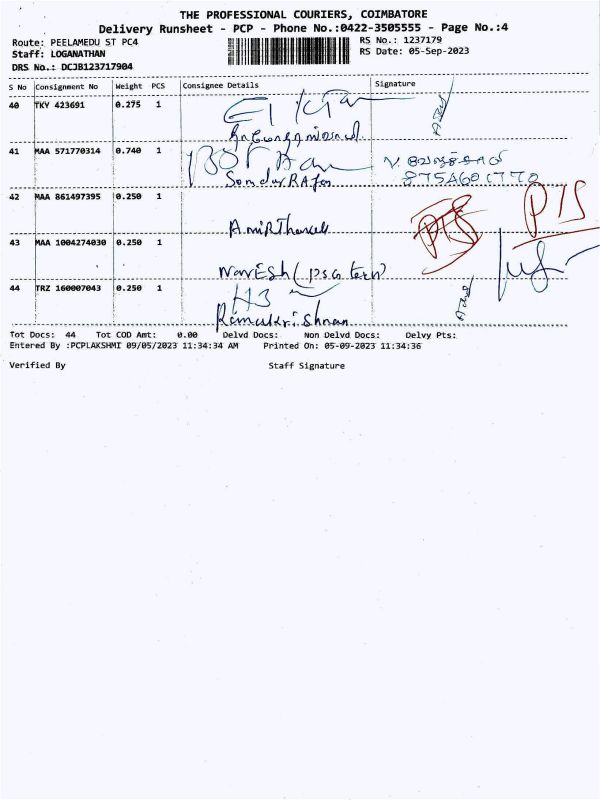 THE PROFESSIONAL COURIERS, COIMBATORE
Delivery Runsheet - PCP - Phone No.:0422-3505555 - Page No.:4
Route: PEELAMEDU ST PC4
RS No.: 1237179
Staff: LOGANATHAN
RS Date: 05-Sep-2023
DRS No.: DCJB123717904
S No Consignment No Weight PCS Consignee Details Signature
40 TKY 423691 0.275 1
41 MAA 571770314 0.740 1
SondurRAjan
42 MAA 861497395 0.250 1
P/S
43 MAA 1004274030 0.250 1
NavESh (psg tech)
44 TRZ 160007043 0.250 1
H3
Ramakrishnan
Tot Docs: 44 Tot COD Amt: 0.00 Delvd Docs: Non Delvd Docs: Delvy Pts:
Entered By :PCPLAKSHMI 09/05/2023 11:34:34 AM Printed On: 05-09-2023 11:34:36
Verified By Staff Signature